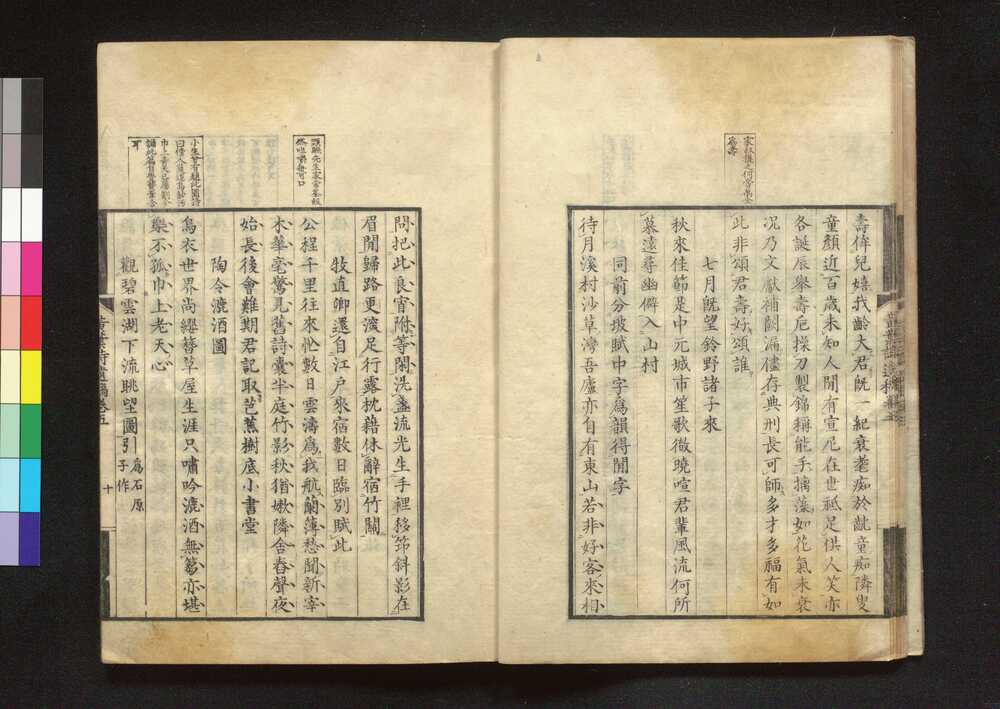 壽侔兒嬉我齡大君既一紀衰耄痴於齔童痴隣叟
童顏近百歲未知人間有宣尼在世祗足供人笑亦
各誕辰擧壽巵操刀製錦稱能手摛藻如花氣未衰
況乃文獻補闕漏儘存典刑長可師多才多福有如
此非頌君壽好頌誰
七月既望鈴野諸子來
秋來佳節是中元城市笙歌徹曉喧君輩風流何所
慕遠尋幽僻入山村
同前分坡賦中字爲韻得間字
待月溪村沙草灣吾廬亦自有東山若非好客來相
問把此良宵附等閑洗盞流光生手裡移笻斜影在
眉間歸路更深足行露枕藉休辭宿竹關
牧直卿還自江戶來宿數日臨別賦此
公程千里往來忙數日雲濤爲我航蘭薄愁聞新宰
木華毫驚見舊詩囊半庭竹影秋猶嫩隣舍舂聲夜
始長後會難期君記取芭蕉樹底小書堂
陶令漉酒圖
烏衣世界尚纓簪草屋生涯只嘯吟漉酒無篘亦堪
樂不孤巾上老天心
觀碧雲湖下流眺望圖引
爲石原
子作
黃葉詩遺稿卷五
十